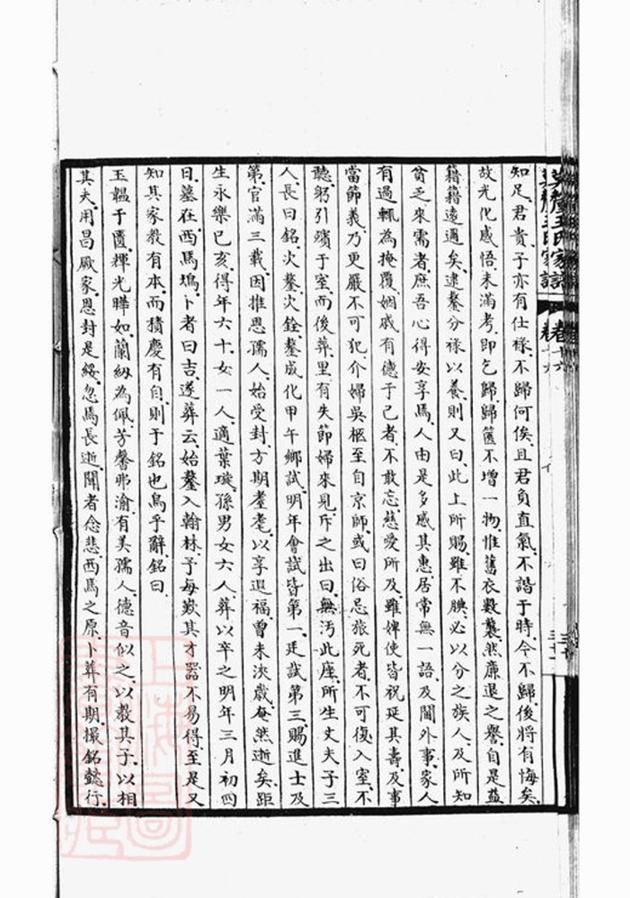 知足君貴子亦有仕祿不歸何俟且君負直氣不諧于時今不歸後將有悔矣
故光化感悟未滿考即乞歸歸篋不增一物惟舊衣數襲然廉退之譽自是益
籍籍遠邇矣逮鏊分祿以養則又曰此上所賜雖不腆必以分之族人及所知
貧乏來需者庶吾心得安享焉人由是多感其惠居常無一語及閫外事家人
有過輒為掩覆姻戚有德于己者不敢忘慈愛所及雖婢使皆祝延其壽及事
當節義乃更嚴不可犯介婦吳柩至自京師或曰俗忌旅死者不可復入室不
聽躬引殯于室而後葬里有失節婦來見斥之出曰無汚此座所生丈夫子三
人長曰銘次鏊次銓鏊成化甲午鄉試明年會試皆第一廷試第三賜進士及
第官滿三載因推恩孺人始受封方期耋耄以享遐福曾未浹歲奄然逝矣距
生永樂己亥得年六十女一人適葉璇孫男女六人葬以卒之明年三月初四
日墓在西馬塢卜者曰吉遂葬云始鏊入翰林予每歎其才器不易得至是又
知其家教有本而積慶有自則于銘也烏乎辭銘曰
玉韞于匵輝光曄如蘭紉為佩芳馨弗渝有美孺人德音似之以教其子以相
其夫用昌厥家恩封是綏忽焉長逝聞者念悲西馬之原卜葬有期撮銘懿行
莫釐王氏家譜 卷十六
上海圖書館藏